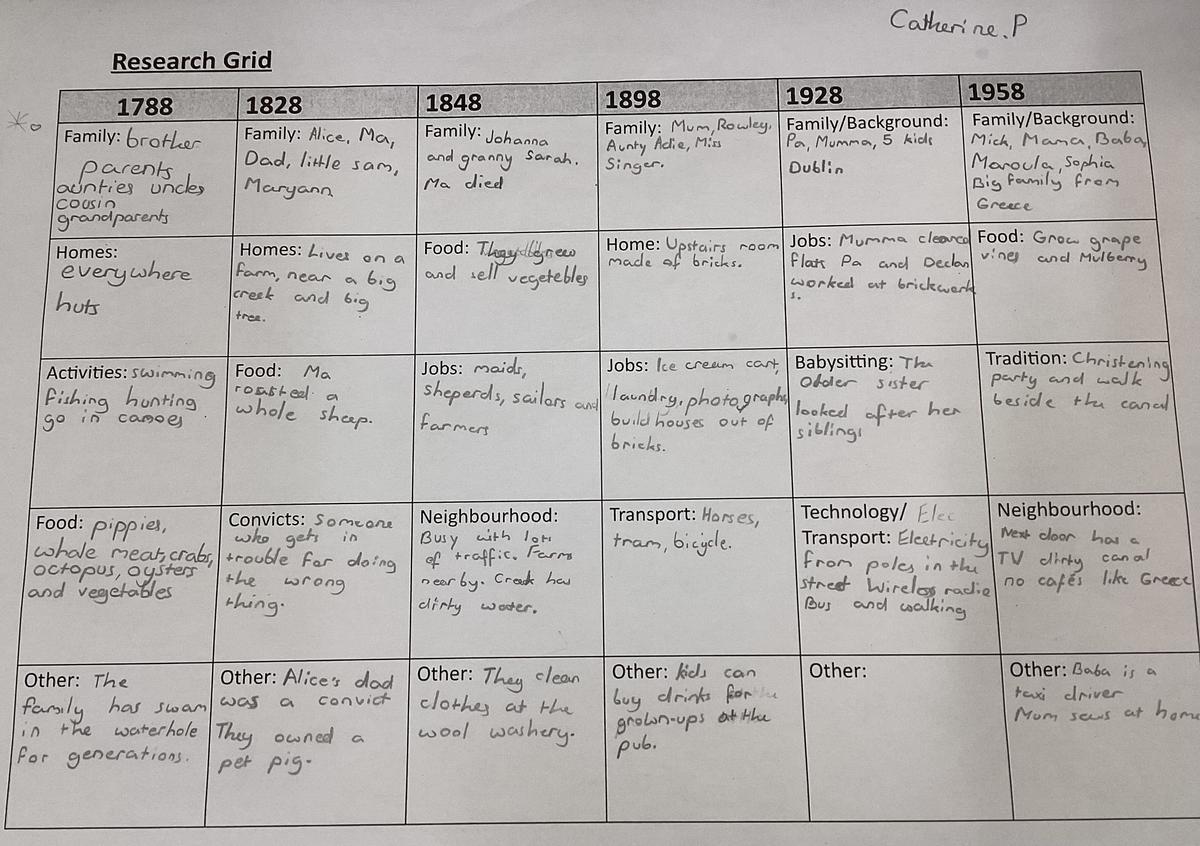 Catherine.P
Research Grid
1788
1828
1848
1898
1928
1958
Family: brother
parents
aunties uncles
cousin
grandparents
Family: Alice, Ma,
Dad, little sam,
Maryann
Family: Johanna
and granny Sarah.
Ma died
Family: Mum, Rowley,
Aunty Adie, Miss
Singer.
Family/Background:
Pa, Mumma, 5 kids
Dublin
Family/Background:
Mick, Mama, Baba,
Maroula, Sophia
Big family from
Greece
Homes:
everywhere
huts
Homes: Lives on a
farm, near a big
creek and big
tree.
Food: They grew
and sell vegetebles
Home: Upstairs room
made of bricks.
Jobs: Mumma cleaned
flats Pa and Declan
worked at brickwork
s.
Food: Grow grape
vines and Mulberry
Activities: swimming
fishing hunting
go in canoes
Food: Ma
roasted a
whole sheep.
Jobs: maids,
sheperds, sailors and
farmers
Jobs: Ice cream cart,
laundry, photographs,
build houses out of
bricks.
Babysitting: The
older sister
looked after her
siblings
Tradition: Christening
party and walk
beside the canal
Food: pippies,
whale meat, crabs,
octopus, oysters
and vegetables
Convicts: Someone
who gets in
trouble for doing
the wrong
thing.
Neighbourhood:
Busy with lots
of traffic. Farms
nearby. Creek has
dirty water.
Transport: Horses,
tram, bicycle.
Technology/ Elec
Transport: Electricity
from poles in the
street Wireless radio
Bus and walking
Neighbourhood:
Next door has a
TV dirty canal
no cafés like Greece
Other: The
family has swam
in the waterhole
for generations.
Other: Alice's dad
was a convict
They owned a
pet pig.
Other: They clean
clothes at the
wool washery.
Other: kids can
buy drinks for the
grown-ups at the
pub.
Other:
Other: Baba is a
taxi driver
Mum sews at home